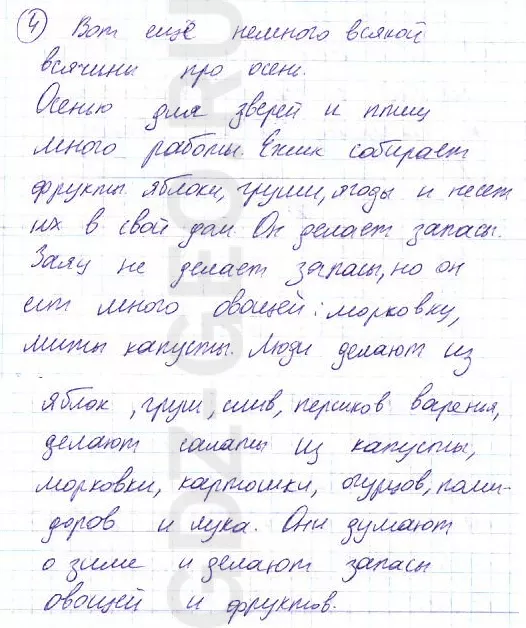 4) Вот ещё немного всякой
всячины про осень.
Осенью для зверей и птиц
много работы. Ежик собирает
фрукты яблоки, груши, ягоды и несет
их в свой дом. Он делает запасы.
Заяц не делает запасы, но он
ест много овощей: морковку,
капусты. Люди делают из
яблок, груш, слив, персиков варенья,
делают салаты из капусты,
морковки, картошки, огурцов, поми-
доров и лука. Они думают
о зиме и делают запасы
овощей и фруктов.
GDZ-GEO.RU